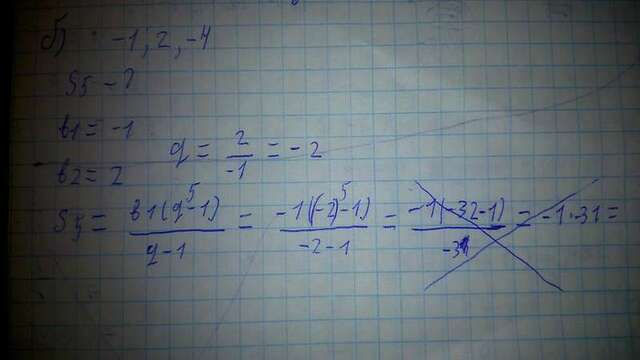 б) -1; 2, -4
S5 - ?
b1 = -1
b2 = 2
q = 2/-1 = -2
S5 = b1(q^5-1)/q-1 = -1((-2)^5-1)/-2-1 = -1(-32-1)/-3 = -1·31 =